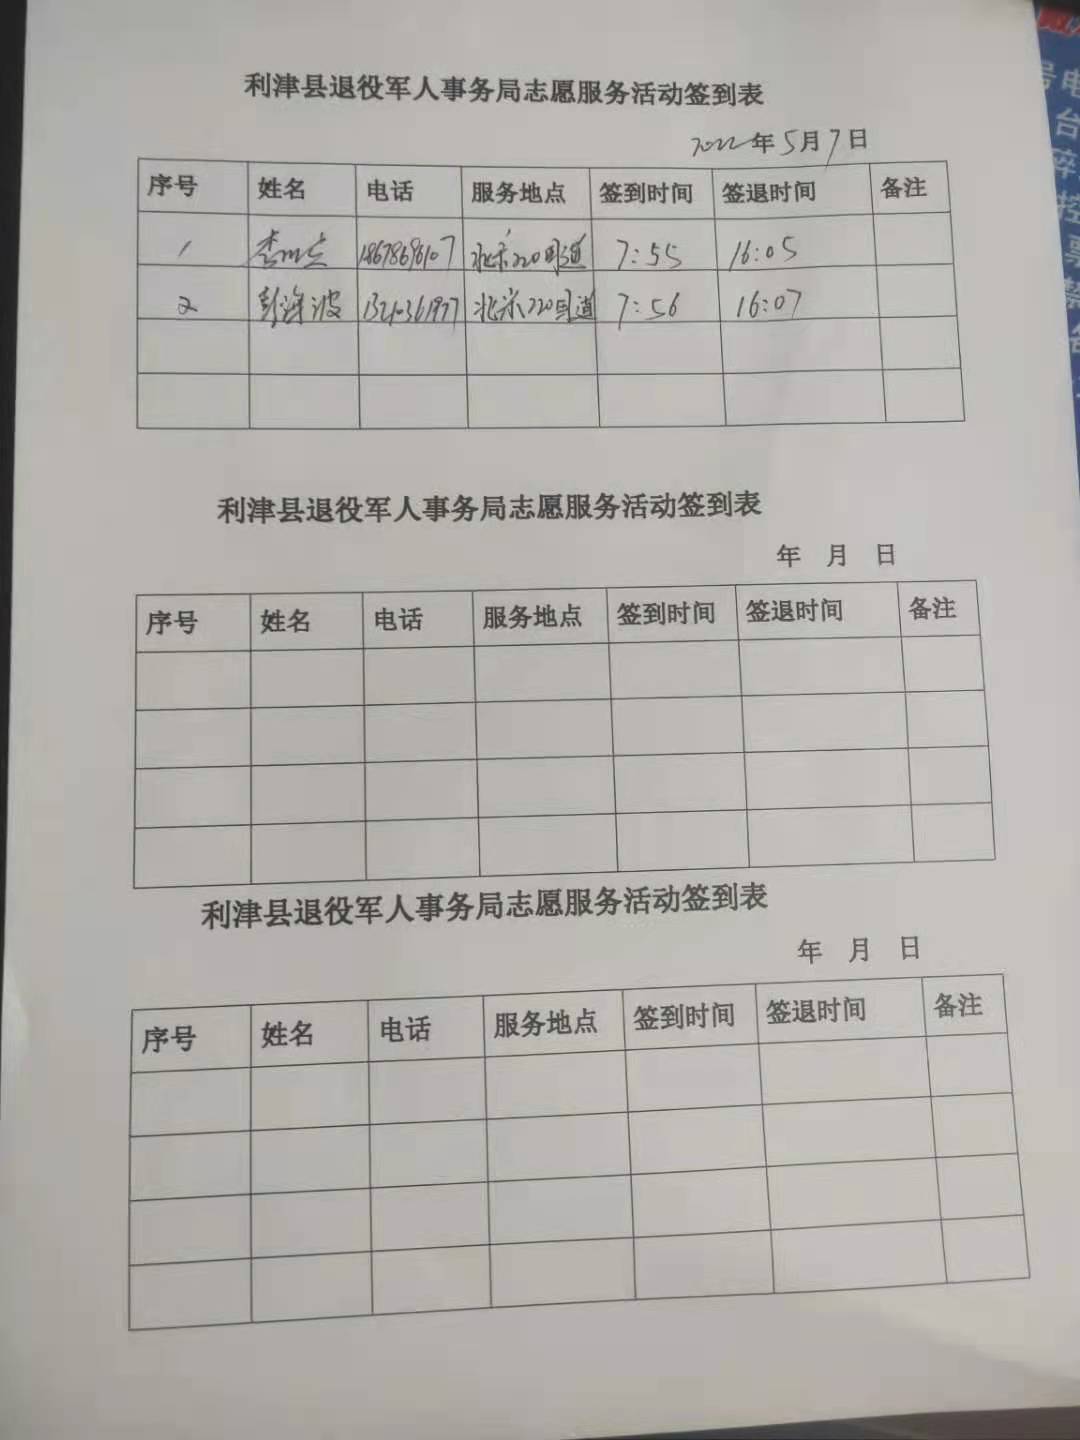 利津县退役军人事务局志愿服务活动签到表
2022年5月7日
序号 姓名 电话 服务地点 签到时间 签退时间 备注
1 18678696107 北宋220国道 7:55 16:05
2 彭海波 北宋220国道 7:56 16:07
利津县退役军人事务局志愿服务活动签到表
年 月 日
序号 姓名 电话 服务地点 签到时间 签退时间 备注
利津县退役军人事务局志愿服务活动签到表
年 月 日
序号 姓名 电话 服务地点 签到时间 签退时间 备注